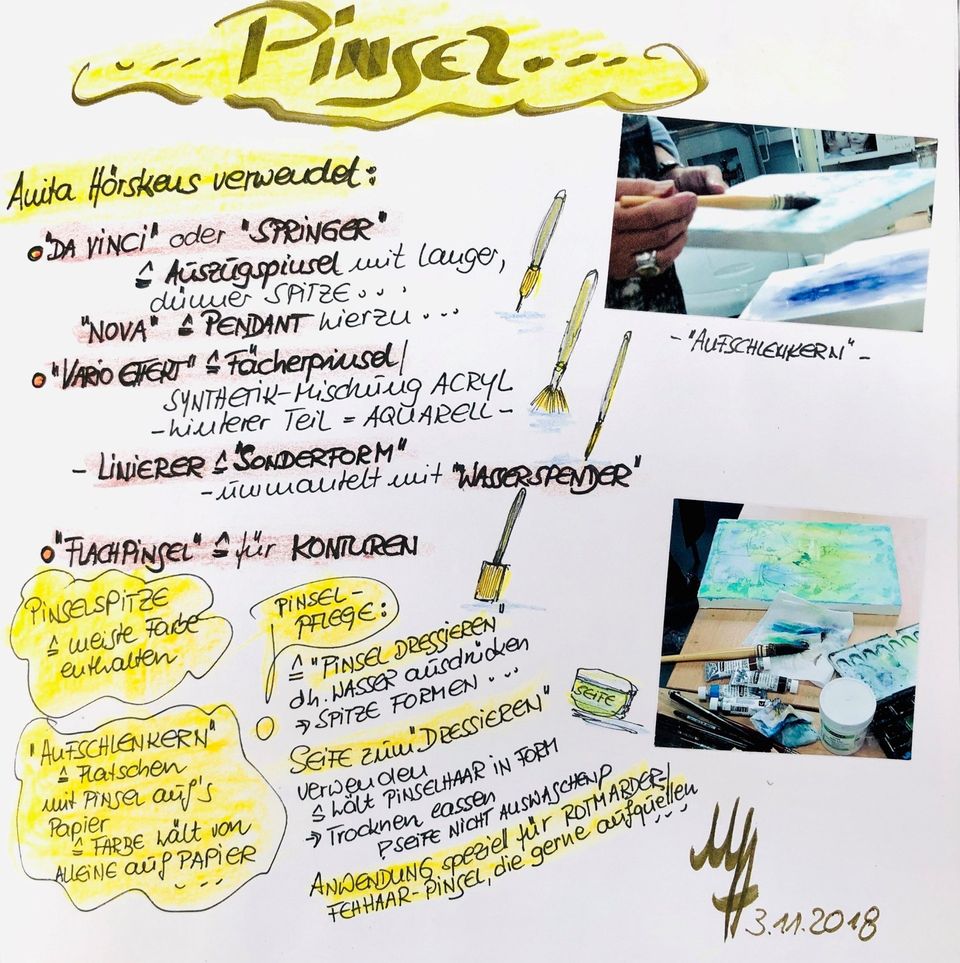 Pinsel....
Anita Hörskens verwendet:
"DA VINCI" oder "SPRINGER"
≙ Auszugspinsel mit langer,
dünner SPITZE...
"NOVA" ≙ PENDANT hierzu...
"VARIO EFFEKT" ≙ Fächerpinsel/
SYNTHETIK-Mischung ACRYL
-hinterer Teil = AQUARELL-
- LINIERER ≙ "SONDERFORM"
-ummantelt mit "WASSERSPENDER"
"FLACHPINSEL" ≙ für KONTUREN
PINSELSPITZE
≙ meiste Farbe
enthalten
"AUFSCHLENKERN"
≙ Flatschen
mit PINSEL auf's
Papier
≙ FARBE hält von
ALLEINE auf PAPIER
...
PINSEL-
PFLEGE:
≙ "PINSEL DRESSIEREN"
dh. WASSER ausdrücken
→ SPITZE FORMEN...
SEIFE zum "DRESSIEREN"
verwenden
≙ hält PINSELHAAR IN FORM
→ Trocknen lassen
! SEIFE NICHT AUSWASCHEN!
ANWENDUNG speziell für ROTMARDER-/
FEHHAAR-PINSEL, die gerne aufquellen
...
SEIFE
- "AUFSCHLENKERN" -
3.11.2018